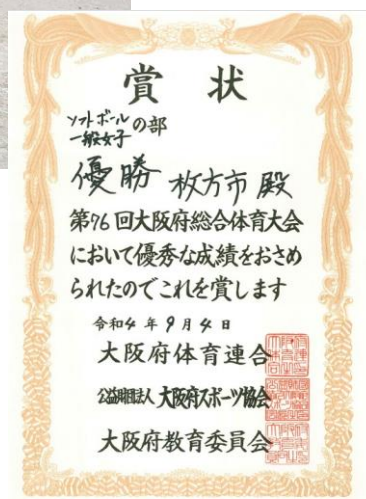 賞状
ソフトボール
一般女子の部
優勝 枚方市 殿
第76回大阪府総合体育大会
において優秀な成績をおさめ
られたのでこれを賞します
令和4年9月4日
大阪府体育連合
公益財団法人 大阪府スポーツ協会
大阪府教育委員会